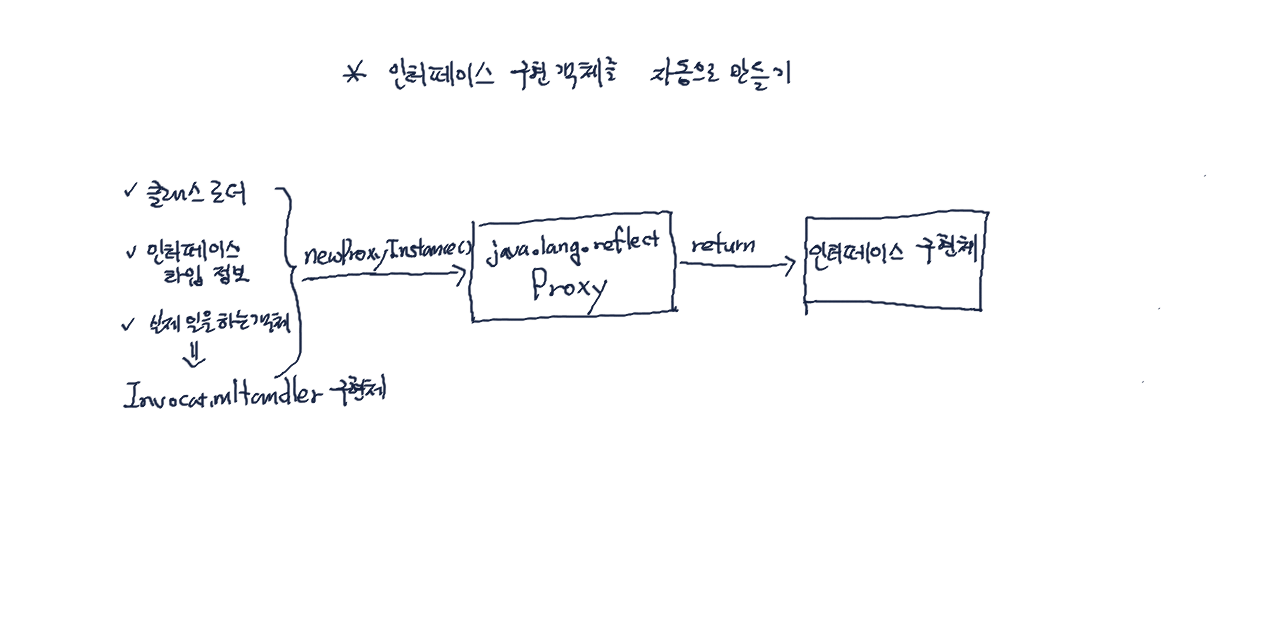 * 인터페이스 구현 객체를 자동으로 만들기
✓ 클래스로더
✓ 인터페이스
타입 정보
✓ 실제 일을 하는 객체
⇓
InvocationHandler 구현체
newProxyInstance()
java.lang.reflect
Proxy
return
인터페이스 구현체